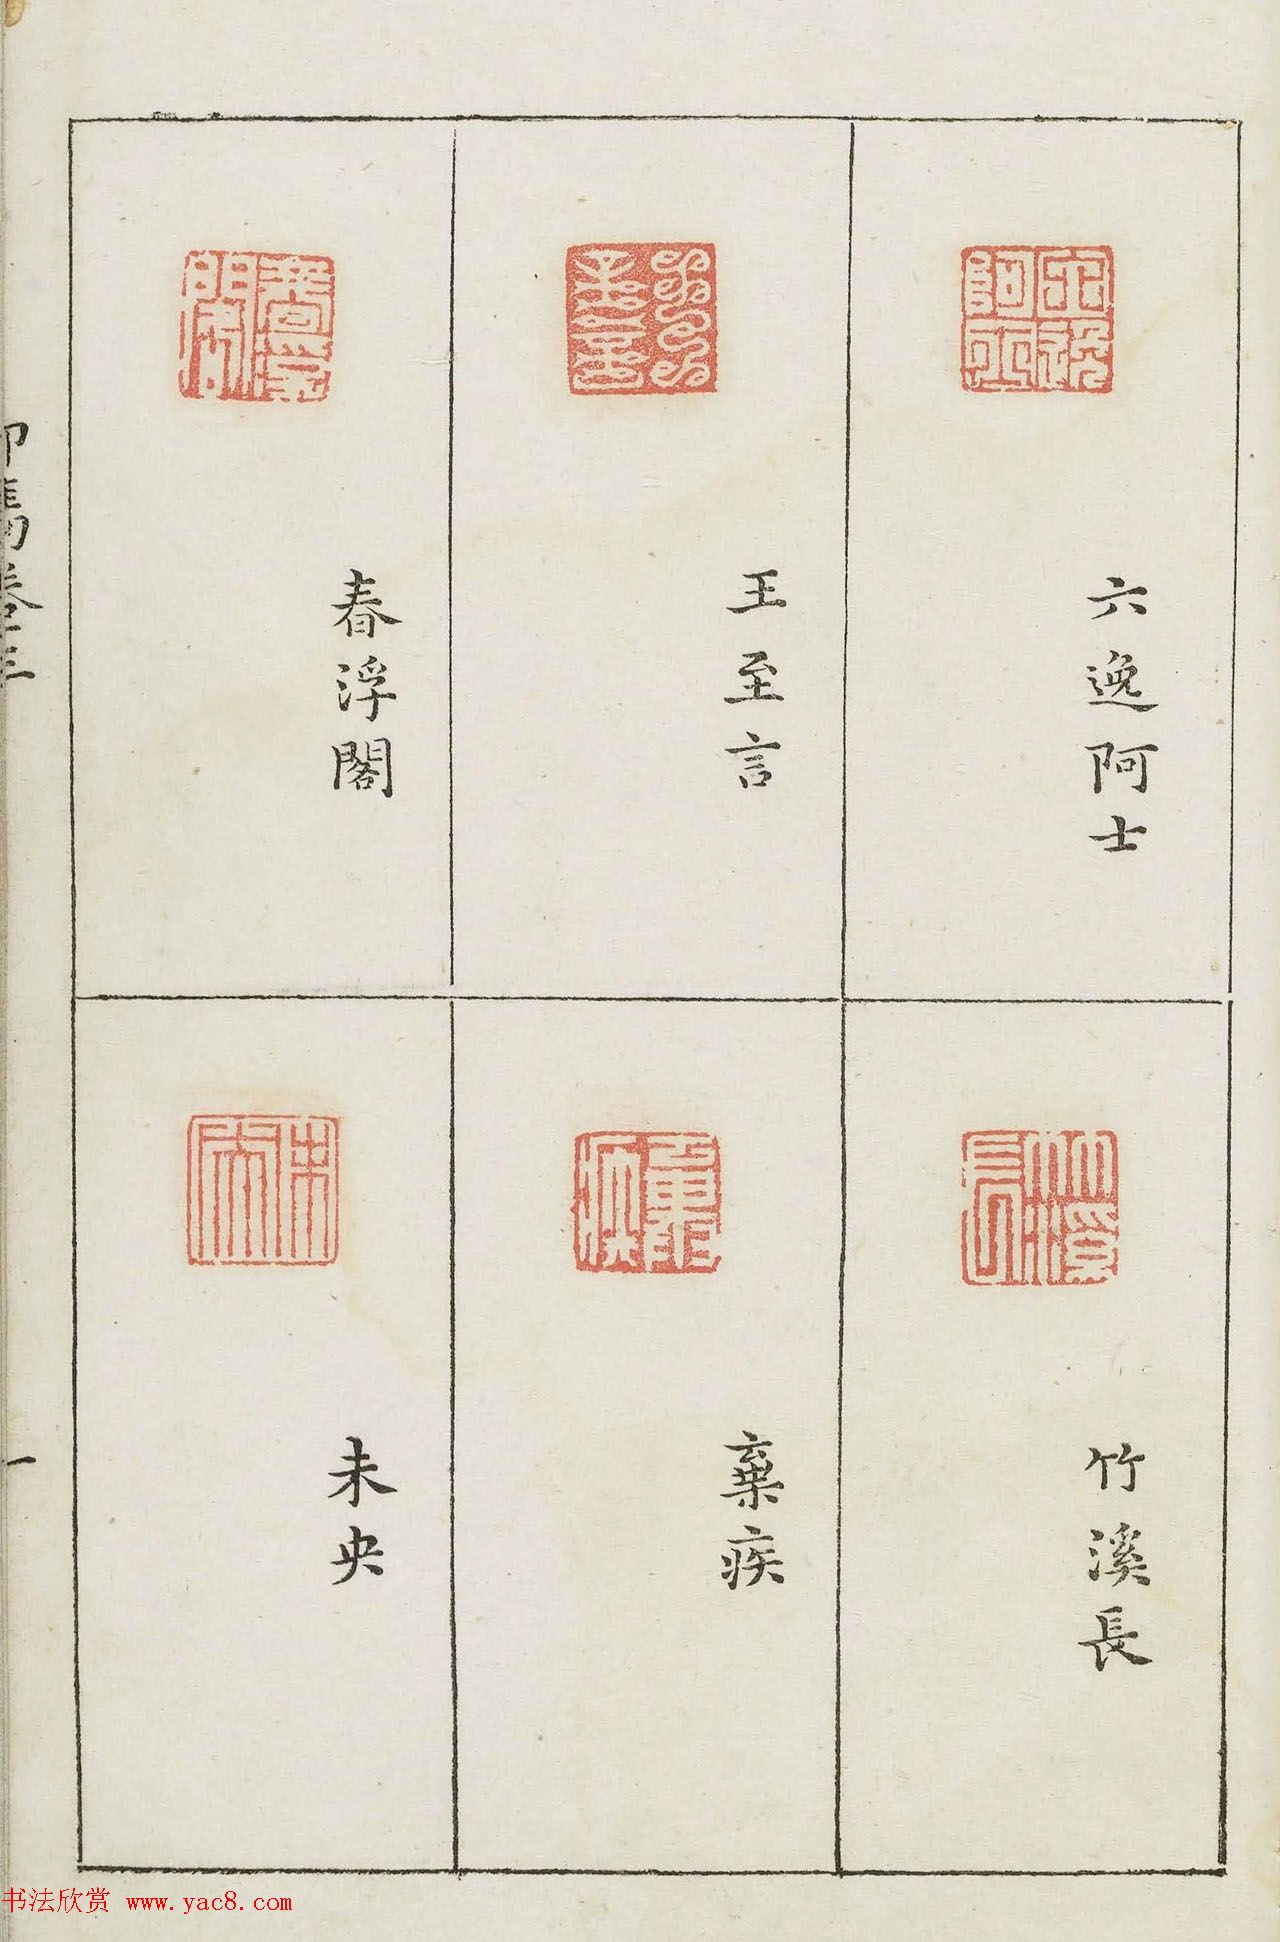 六逸阿士
王至言
春浮閣
竹溪長
棄疾
未央
卷三
一
书法欣赏 www.yac8.com